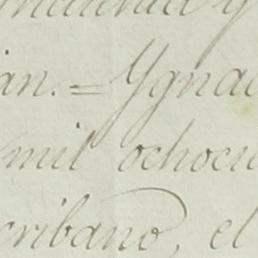 y
an. = Ygnac
mil ochocie
cribano, el